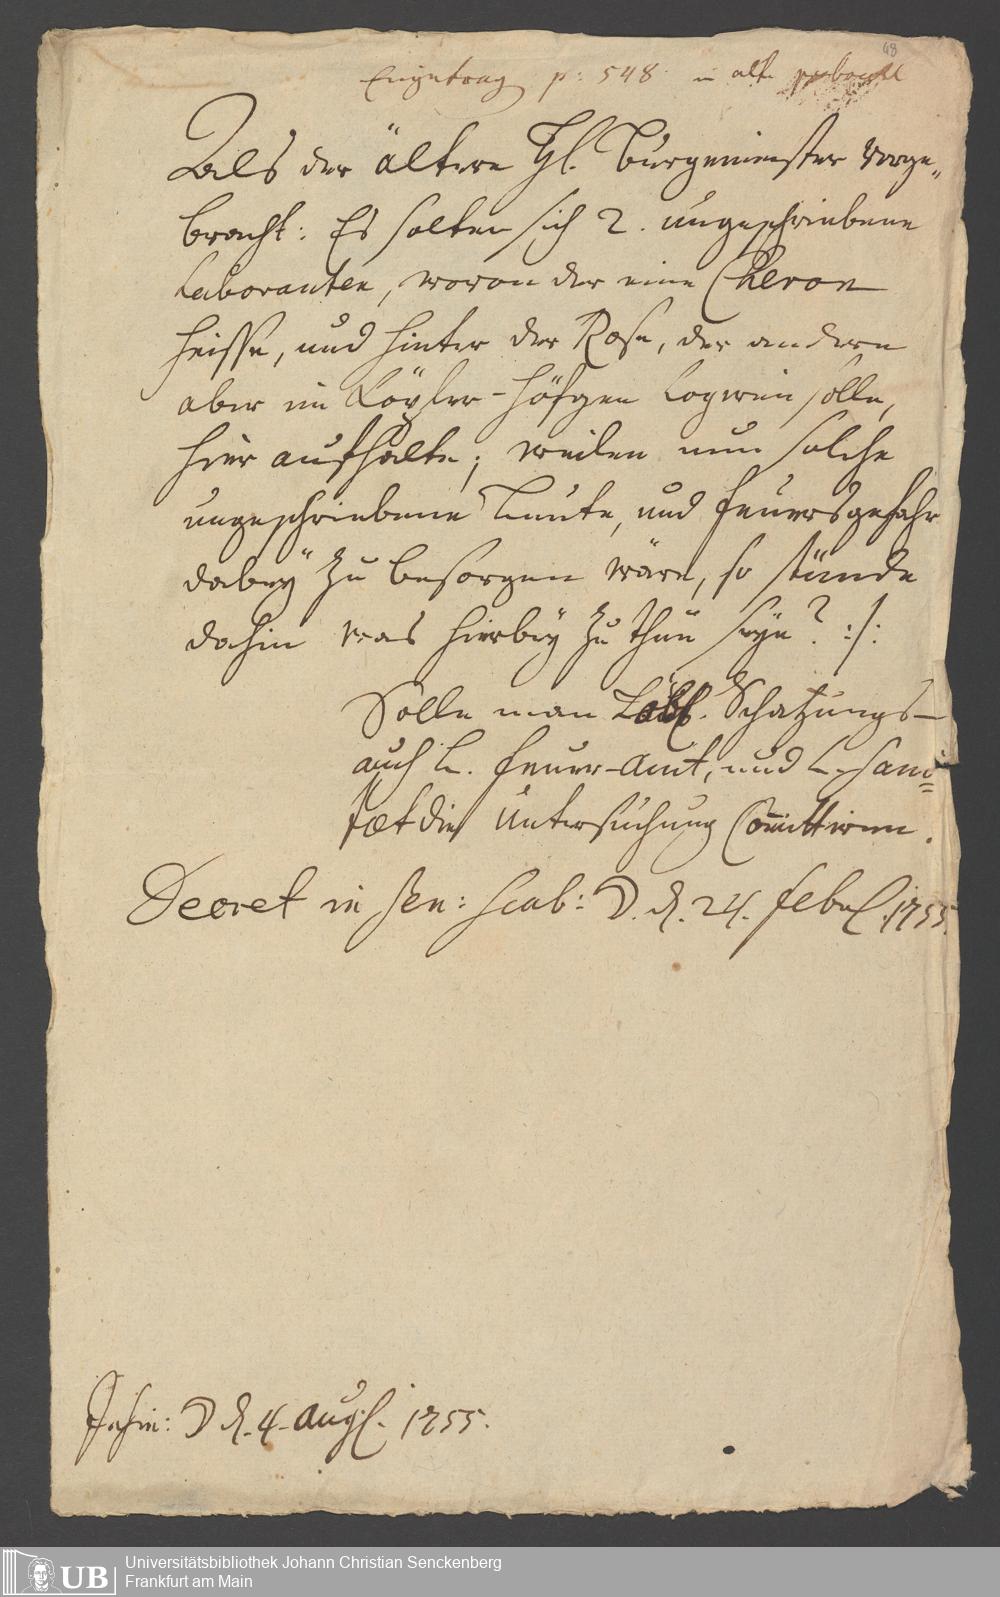 48
Eingetrag p: 548 in alt.
Als der ältere Hl. Burgemeister vorge„
bracht: Es solten sich 2. ungeschriebene
Laboranten, wovon der eine Cheron
heisse, und hinter der Rose, der andere
aber im Löyher-Höfgen logiren solle,
hier aufhalte; weilen nun solche
ungeschriebene Leute, und feuersgefahr
dabeÿ zu besorgen wäre, so stünde
dahin was hierbeÿ zu thun seÿe? :/:
Solle man Löbl. Schatzungs-
auch L. Feuer-Amt, und L. Sani=
tæt die Untersuchung Comittiren.
Decret in Sen: Scab: D. d. 24. Febr. 1755.
D. d. 4. Aug. 1755.
Universitätsbibliothek Johann Christian Senckenberg
UB
Frankfurt am Main